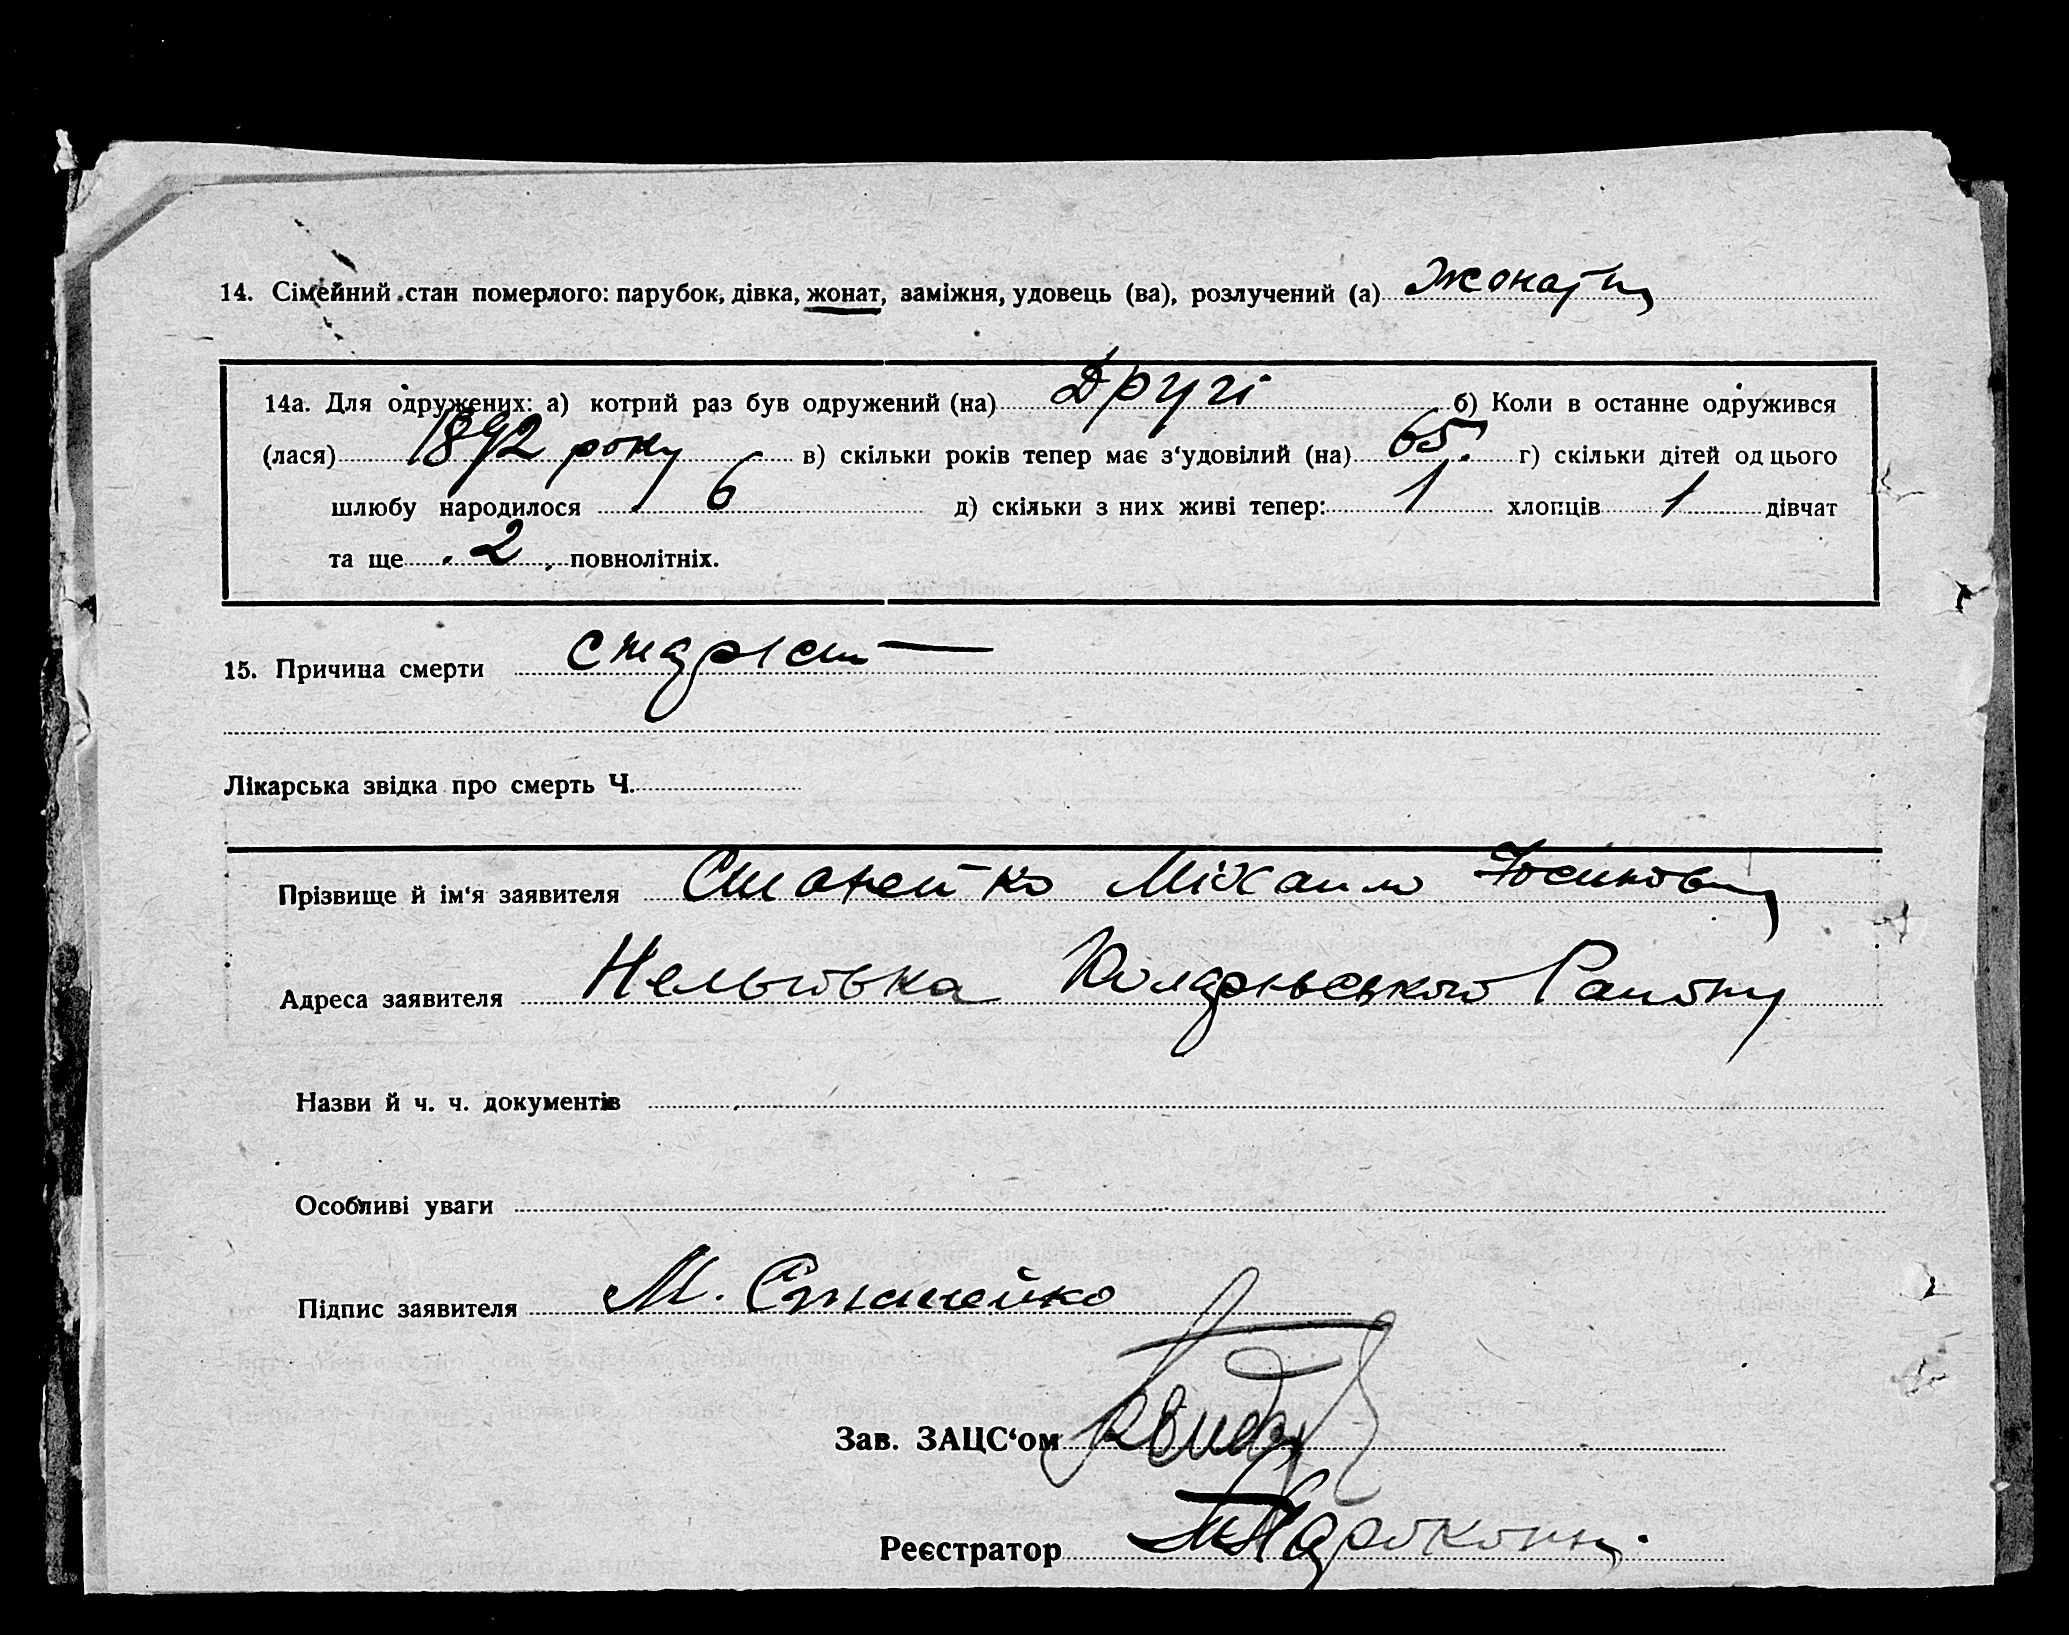 14. Сімейний стан померлого: парубок, дівка, жонат, заміжня, удовець (ва), розлучений (а) Жонатий
14а. Для одружених: а) котрий раз був одружений (на) Другі б) Коли в останне одружився
(лася) 1892 року в) скільки років тепер має з'удовілий (на) 65. г) скільки дітей од цього
шлюбу народилося 6 д) скільки з них живі тепер: 1 хлопців 1 дівчат
та ще 2 повнолітніх.
15. Причина смерти старіст
Лікарська звідка про смерть Ч.
Прізвище й ім'я заявителя Міхаило
Адреса заявителя Нельговка
Назви й ч. ч. документів
Особливі уваги
Підпис заявителя М.
Зав. ЗАЦС'ом
Реєстратор